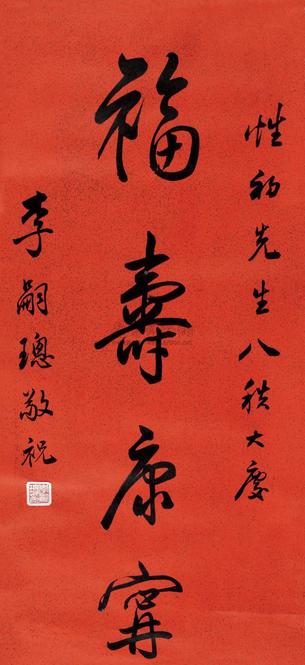 性初先生八秩大慶
福壽康甯
李嗣璁敬祝